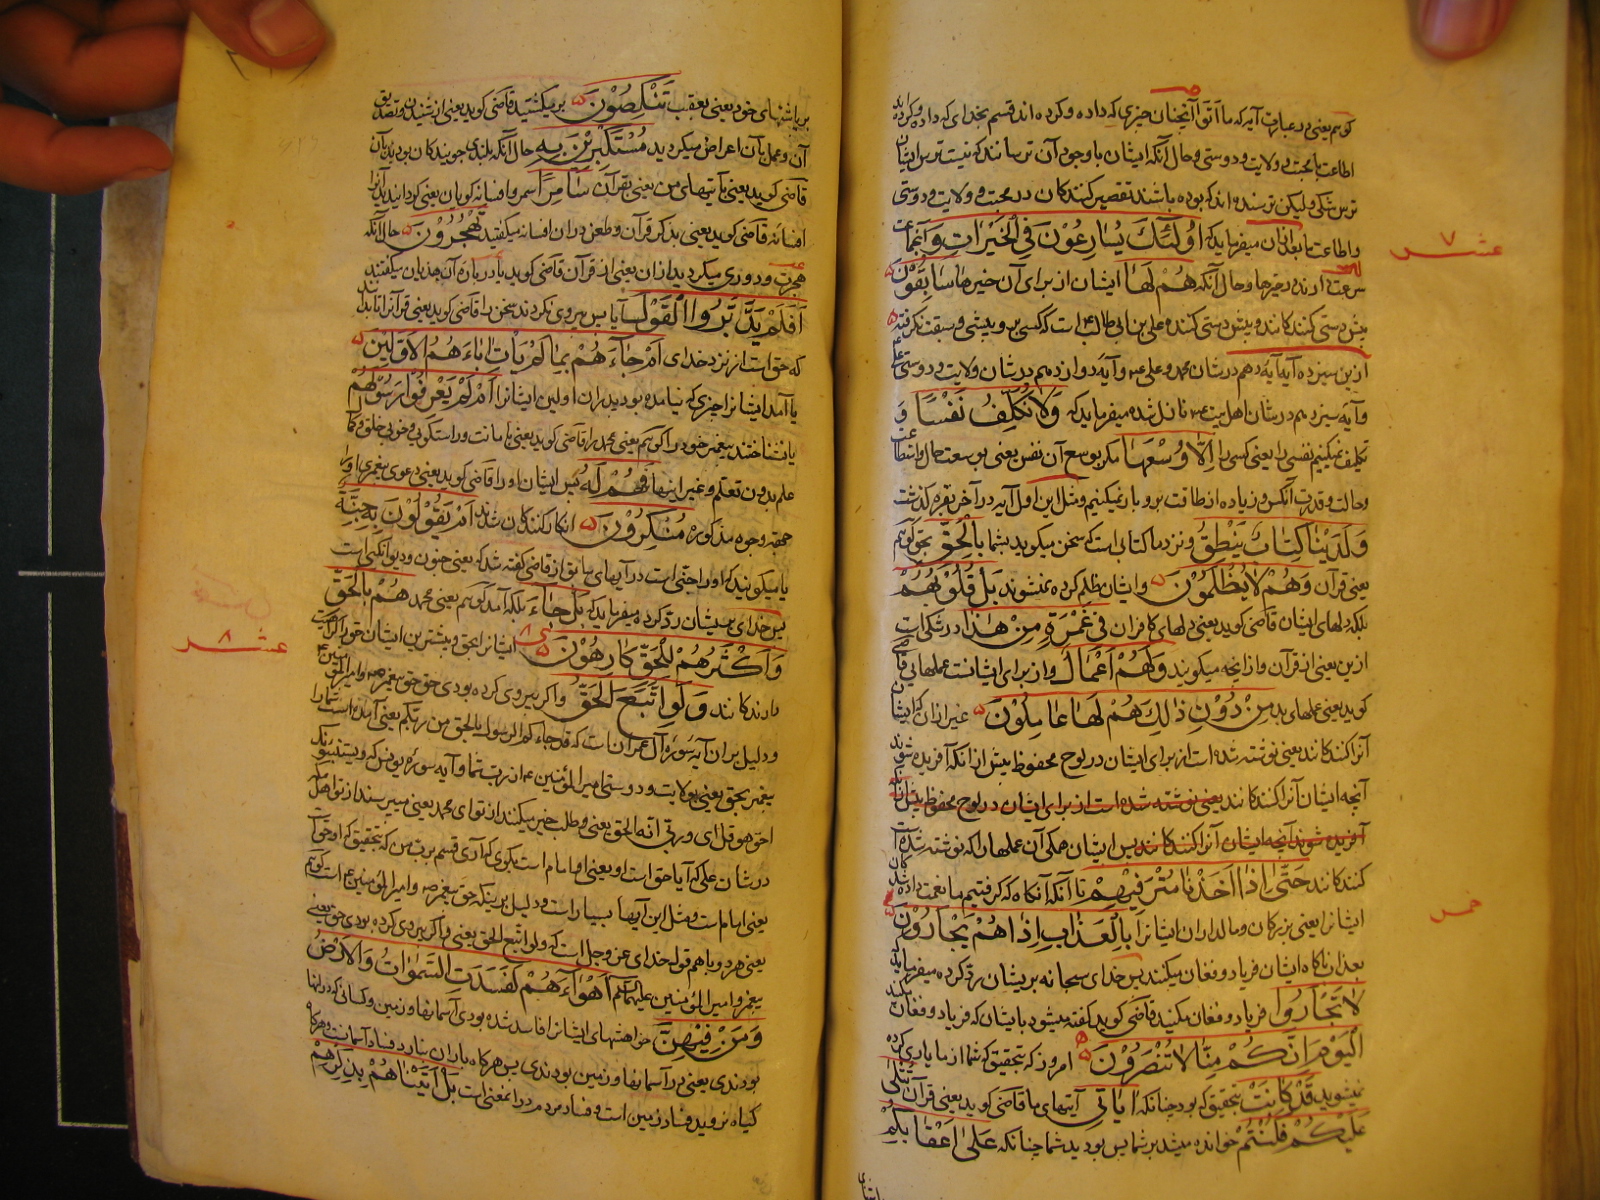 کوهم یعنی در عبارت آیه که ما اتوا آنچنان چیزی که داده و کرده اند قسم بخدای که داده و کرده اند
اطاعت با محبت و ولایت و دوستی و حال آنکه ایشان با وجود آن ترسانند که نیست ترس ایشان
ترس شکی ولیکن ترسنده اند که بوده باشند تقصیر کنندکان در محبت و ولایت و دوستی
و اطاعت ما بعد از آن میفرماید که اُولٰئِكَ یُسَارِعُوْنَ فِی الْخَیْرَاتِ وَ آنجماعت
عشر ۷
سرعت آرنده در خیرها و حال آنکه هُمْ لَهَا ایشان از برای آن خیرها سَابِقُوْنَ
پیش دستی کنندکانند و پیش دستی کننده علی بن ابی طالب است که کسی بر وی پیشی و سبقت نکرفته
ازین سیزده آیه آیه دهم در شان محمد و علی و آیه دوازدهم در شان ولایت و دوستی علی
و آیه سیزدهم در شان اهل بیت نازل شده میفرماید که وَلَا نُكَلِّفُ نَفْسًا وَ
تکلیف نمیکنیم نفسی را یعنی کسی را اِلَّا وُسْعَهَا مکر بوسع آن نفس یعنی بوسعت حال و استطاعت
و حالت و قدرت آنکس و زیاده از طاقت برو بار نمیکنیم و مثل این اول آیه در آخر بقره کذشت
وَلَدَیْنَا كِتَابٌ یَنْطِقُ و نزد ما کتابی است که سخن میکوید بشما بِالْحَقِّ بحق کوهم
یعنی قرآن وَهُمْ لَا یُظْلَمُوْنَ و ایشان ظلم کرده نمیشوند بَلْ قُلُوْبُهُمْ
بلکه دلهای ایشان قاضی کوید یعنی دلهای کافران فِیْ غَمْرَةٍ مِنْ هٰذَا در شکی است
ازین یعنی از قرآن و از آنچه میکویند وَلَهُمْ اَعْمَالٌ و از برای ایشانست عملهایی قاضی
کوید یعنی عملهای بد مِنْ دُوْنِ ذٰلِكَ هُمْ لَهَا عَامِلُوْنَ غیر از آن که ایشان
آنرا کنندکانند یعنی نوشته شده است از برای ایشان در لوح محفوظ پیش از آنکه آفریده شوند
آنچه ایشان آنرا کنندکانند یعنی نوشته شده است از برای ایشان در لوح محفوظ پیش از آنکه
آفریده شوند آنچه ایشان آنرا کنندکانند پس ایشان همکی آن عملها را که نوشته شده آنرا
کنندکانند حَتّٰی اِذَا اَخَذْنَا مُتْرَفِیْهِمْ تا آنکه آنکاه که کرفتیم ما نعمت داده شدکان
ایشانرا یعنی بزرکان و مالداران ایشانرا بِالْعَذَابِ اِذَا هُمْ یَجْأَرُوْنَ
خمس
بعذاب ناکاه ایشان فریاد و فغان میکنند پس خدای سبحانه بریشان رد کرده میفرماید
لَا تَجْأَرُوا فریاد و فغان مکنید قاضی کوید کفته میشود بایشان که فریاد و فغان مکنید
الْیَوْمَ اِنَّكُمْ مِنَّا لَا تُنْصَرُوْنَ امروز که بتحقیق که شما از ما یاری کرده
نمیشوید قَدْ كَانَتْ بتحقیق که بود چنانکه اٰیَاتِیْ آیتهای ما قاضی کوید یعنی قرآن تُتْلٰی
عَلَیْكُمْ فَكُنْتُمْ خوانده میشد بر شما پس بودید شما چنانکه عَلٰی اَعْقَابِكُمْ
بر پاشنهای خود یعنی بعقب تَنْكِصُوْنَ بر میکشتید قاضی کوید یعنی از شنیدن و تصدیق
آن و عمل بآن اعراض میکردید مُسْتَكْبِرِیْنَ بِهٖ حال آنکه بلندی جویندکان بودید بآن
قاضی کوید یعنی بآیتهای من یعنی بقرآن سَامِرًا اسمر و افسانه کویان یعنی کردانیدید آنرا
افسانه قاضی کوید یعنی بذکر قرآن و طعن در آن افسانه میکفتید تَهْجُرُوْنَ حال آنکه
هجرت و دوری میکردید از آن یعنی از قرآن قاضی کوید یا در باره آن هذیان میکفتند
اَفَلَمْ یَدَّبَّرُوا الْقَوْلَ آیا پس پیروی نکردند سخن را قاضی کوید یعنی قرآنرا تا بدانند
که حق است از نزد خدای اَمْ جَاءَهُمْ بِمَا لَمْ یَأْتِ اٰبَاءَهُمُ الْاَوَّلِیْنَ
یا آمد ایشانرا چیزی که نیامده بود پدران اولین ایشانرا اَمْ لَمْ یَعْرِفُوْا رَسُوْلَهُمْ
یا نشناختند پیغمبر خود را کوهم یعنی محمد را قاضی کوید یعنی بامانت و راستکویی و خوبی خلق و کمال
علم بدون تعلم و غیر اینها فَهُمْ لَهٗ پس ایشان او را قاضی کوید یعنی دعوی پیغمبری او را
بجهة وجوه مذکوره مُنْكِرُوْنَ انکار کنندکان شدند اَمْ یَقُوْلُوْنَ بِهٖ جِنَّةٌ
یا میکویند که او را جنی است در آیهای سابق از قاضی کفته شد که یعنی جنون و دیوانکی است
پس خدای بریشان رد کرده میفرماید که بَلْ جَاءَ بلکه آمد کوهم یعنی محمد هُمْ بِالْحَقِّ
عشر ۸
وَاَكْثَرُهُمْ لِلْحَقِّ كَارِهُوْنَ ایشانرا بحق و بیشترین ایشان حق را کراهیت
دارندکانند وَلَوِ اتَّبَعَ الْحَقُّ و اکر پیروی کرده بودی حق حق پیغمبر و امیرالمومنین
و دلیل بر آن آیه سوره آل عمران است که قد جاءکم الرسول بالحق من ربکم یعنی آمده است شما را
پیغمبر بحق یعنی بولایت و دوستی امیرالمؤمنین از رب شما و آیه سوره یونس که و یستنبئونک
احق هو قل ای و ربی انه الحق یعنی و طلب خبر میکنند از تو ای محمد یعنی میپرسند از تو اهل مکه
در شان علی که آیا حق است او یعنی او امام است بکوی که آری قسم برب من که بتحقیق که او حق است
یعنی امام است و مثل این آیها بسیار است و دلیل برینکه حق پیغمبر و امیرالمؤمنین است کوهم
یعنی هر دو با هم قول خدای عز و جل است که ولو اتبع الحق یعنی و اکر پیروی کرده بودی حق یعنی
پیغمبر و امیرالمؤمنین علیهما السلم اَهْوَاءَهُمْ لَفَسَدَتِ السَّمٰوَاتُ وَالْاَرْضُ
وَمَنْ فِیْهِنَّ خواهشهای ایشانرا فاسد شده بودی آسمانها و زمین و کسانی که در آنها
بودندی یعنی در آسمانها و زمین بودندی پس هرکاه باران نبارد فساد آسمانست و هرکاه
کیاه نروید فساد زمین است و فساد مردم در آنمعنی است بَلْ اَتَیْنَاهُمْ بِذِكْرِهِمْ